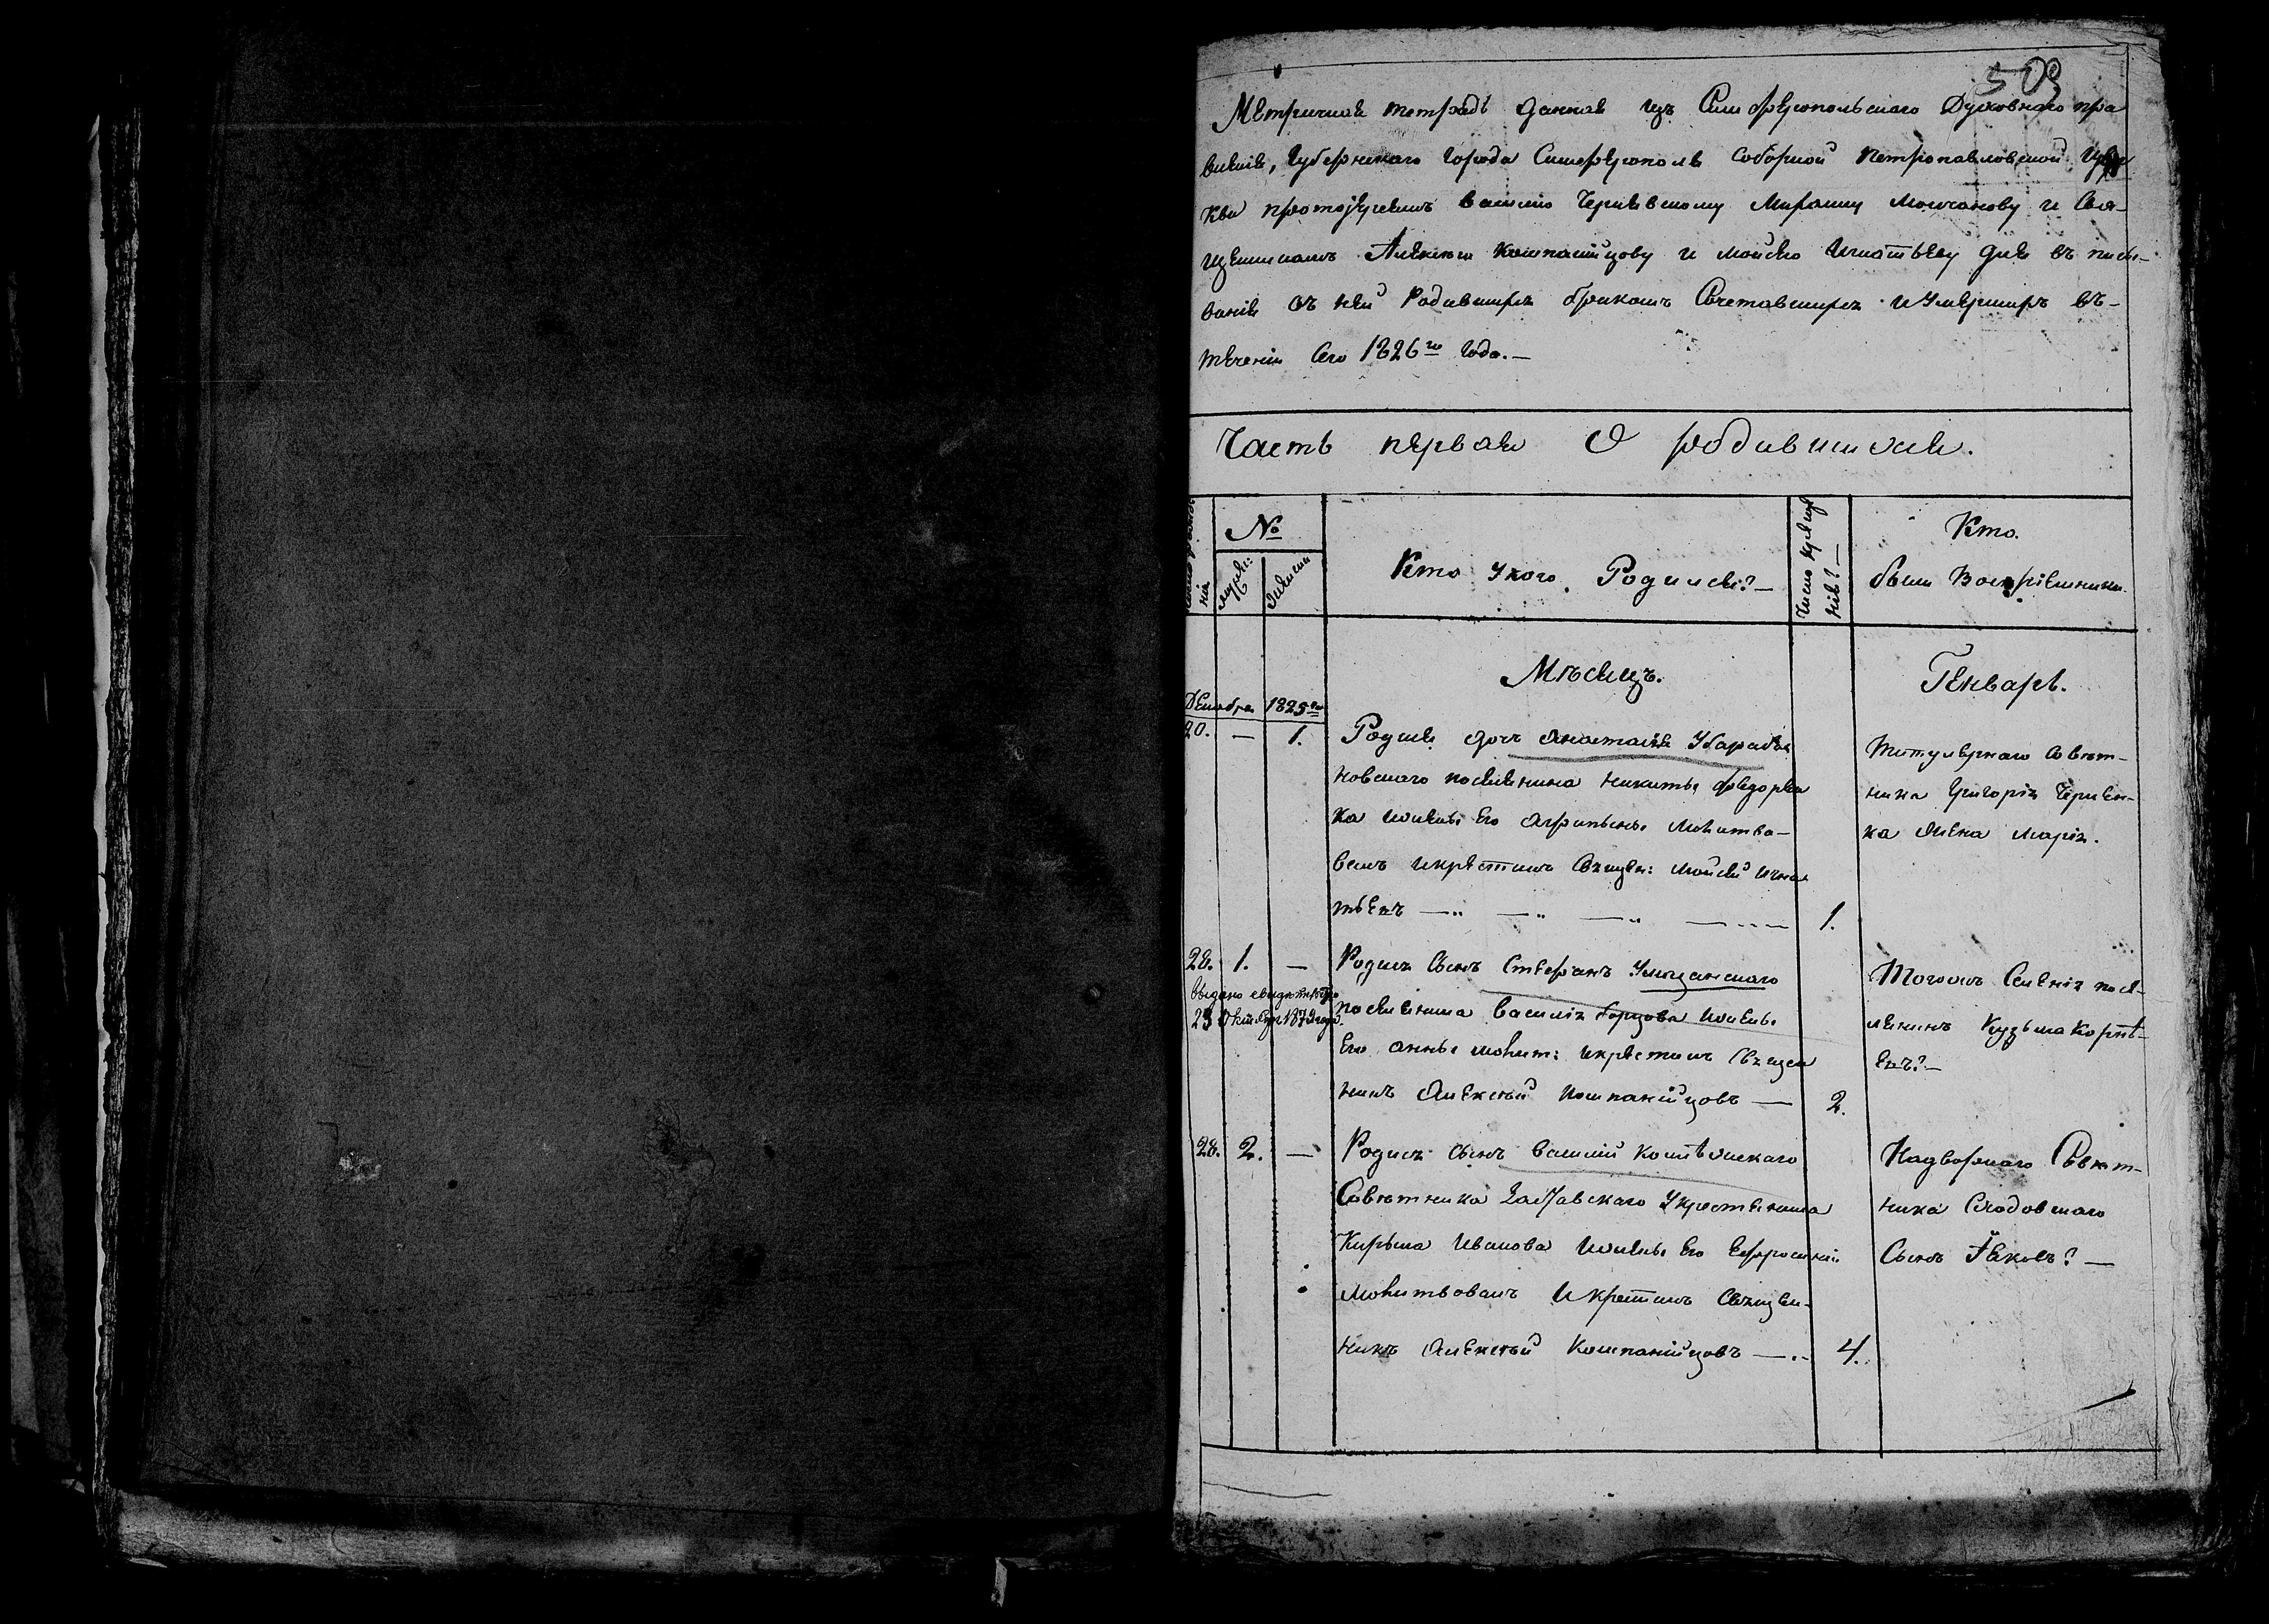 509
Метричная тетрадь данная изъ Симферопольскаго Духовнаго пра
вления, Губернскаго города Симферополя Соборной Петропавловской Цер
кви протоіереямъ Василію Чернявскому Мирану Молчанову и Свя-
щенникамъ Алексею Компанійцову и Мойсею Игнатьеву для въписы-
вания въ ней Родившихся бракомъ Сочетавшихся и Умершихъ въ-
течении Сего 1826го Года.—
Часть первая О родившихся.
№
Кто у кого Родился?—
Кто
были Восприемники
Месяцъ.
Генварь.
Декабря 1825го
20. — 1.
Родися дочь Анастасия У
новскаго поселянина Никиты Федорен
ка жены Его Агрипены Молитво-
валъ и крестилъ Священ: Мойсей Игна
тьевъ — — — — 1.
Титулярнаго Совет-
ника Григория Чернен-
ка жена Мария.
28. 1. —
Выдано свидетельство
23 Октября 1872 года.
Родися Сынъ Стефанъ У
поселянина Василия Борцова жены
Его Анны молит: и крестилъ Священ
никъ Алексей Компанійцовъ — 2.
Тогожъ Селения посе-
лянинъ Кузьма Корне-
евъ?—
28. 2. —
Родися Сынъ Василий Коллежскаго
Советника у крестьянина
Кирыла Иванова жены Его Ефросинии
Молитвовалъ и крестилъ Священ-
никъ Алексей Компанійцовъ — 4.
Надворнаго Совет-
ника
Сынъ Яковъ? —